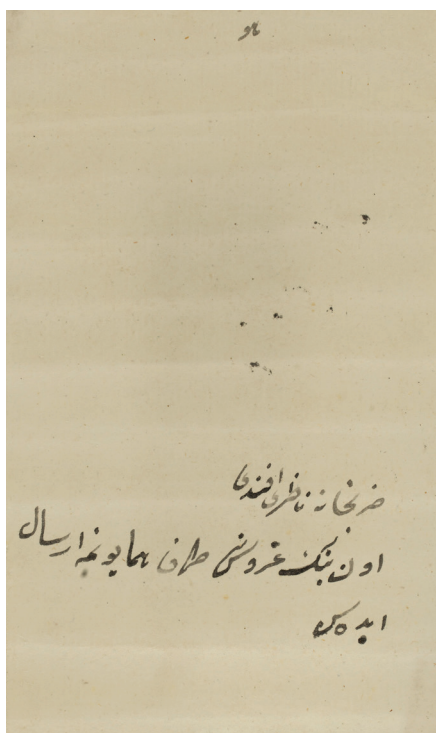 هو
ضربخانه ناظری افندی
اون بیك غروش طرف همایونمه ارسال
ایده سن